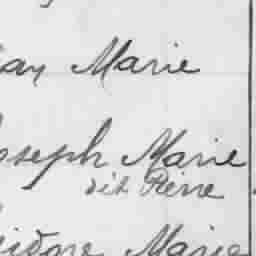 Marie
Joseph Marie
dit Pierre
Isidore Marie